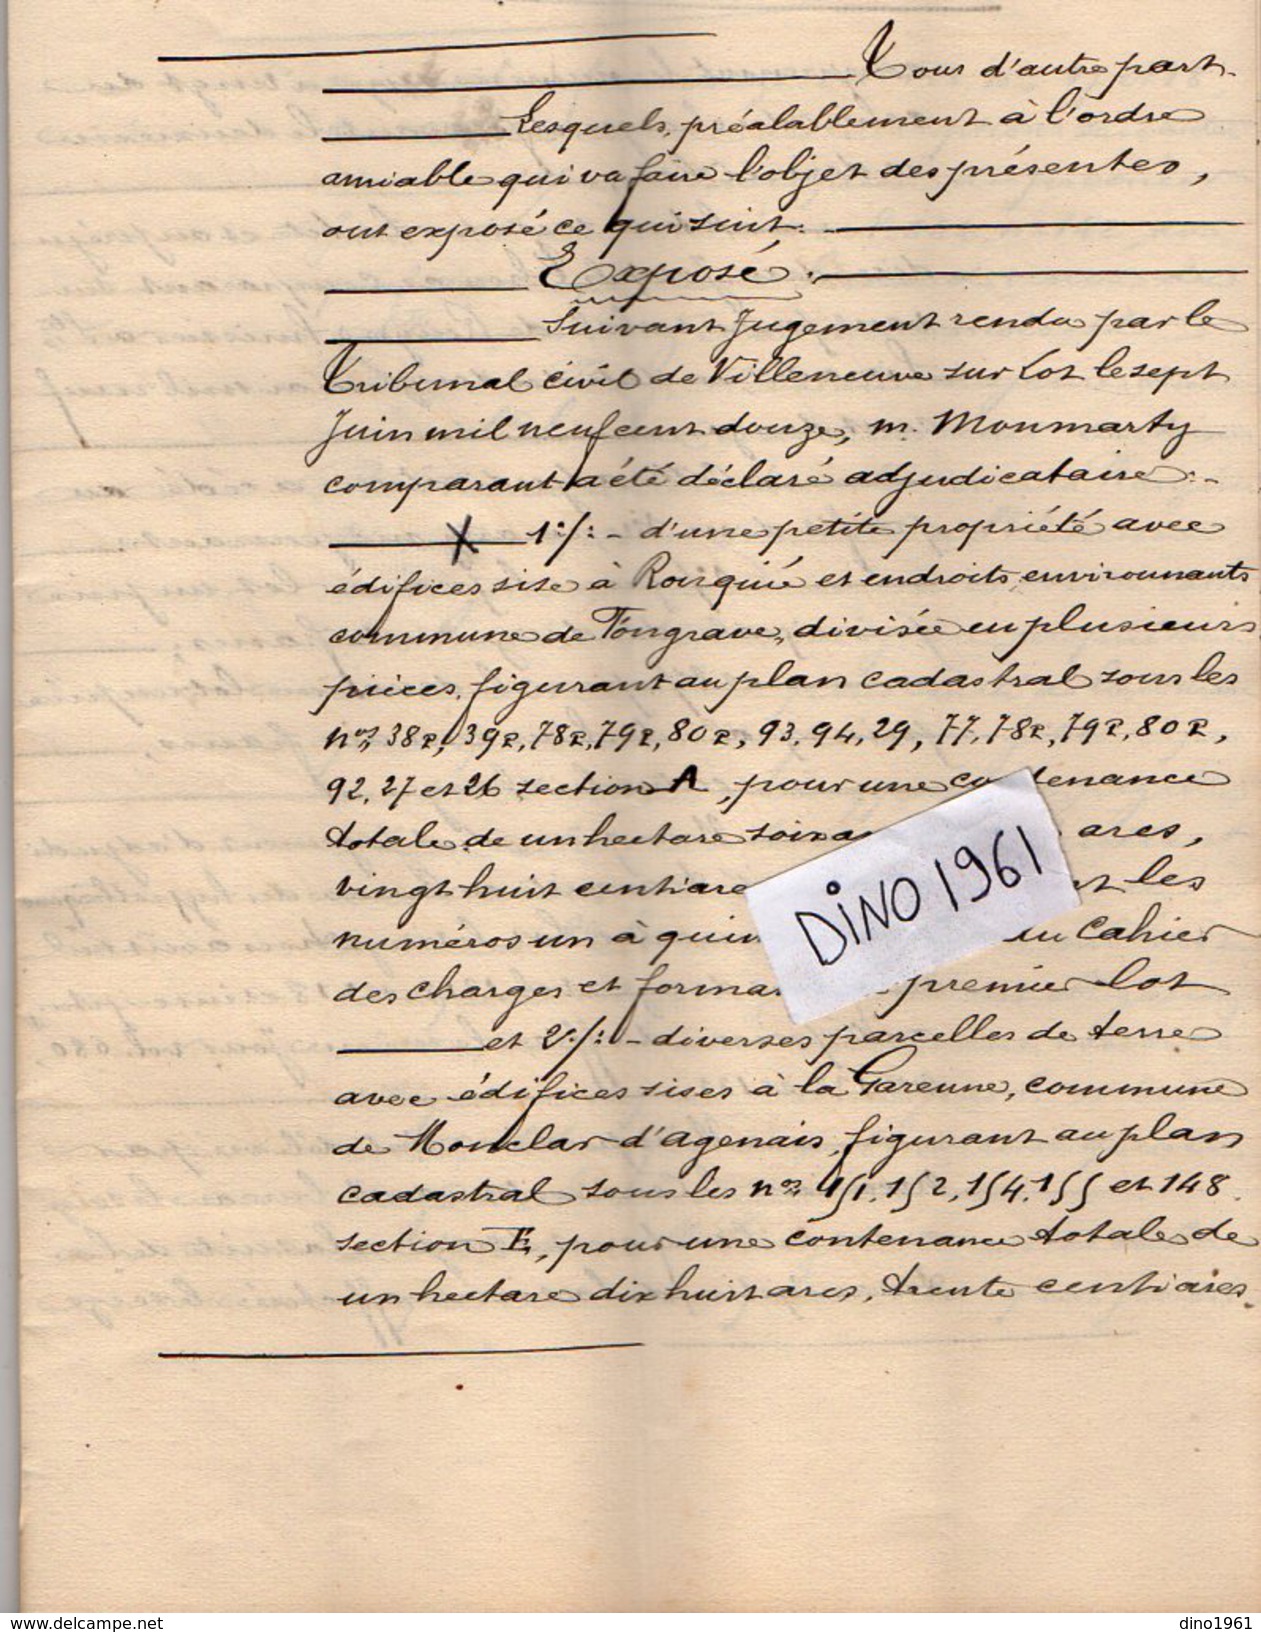 Tous d'autre part.
Lesquels, préalablement à l'ordre
amiable qui va faire l'objet des présentes,
ont exposé ce qui suit:
Exposé.
Suivant Jugement rendu par le
Tribunal civil de Villeneuve sur Lot le sept
Juin mil neuf cent douze, M. Monmarty
comparant a été déclaré adjudicataire:
1º/: d'une petite propriété avec
édifices sise à Rouquié et endroits environnants
commune de Tongrave, divisée en plusieurs
pièces, figurant au plan cadastral sous les
nos, 38p, 39p, 78p, 79p, 80p, 93, 94, 29, 77, 78p, 79p, 80p,
92, 27 et 26 section A, pour une contenance
totale de un hectare ares,
vingt huit centiares les
numéros un à du Cahier
des charges et premier lot
et 2º/: diverses parcelles de terre
avec édifices sises à la Garenne, commune
de Monclar d'agenais, figurant au plan
cadastral sous les nos 151, 152, 154, 155 et 148
section E, pour une contenance totale de
un hectare dix huit ares, trente centiares
DiNO 1961
https://www.delcampe.net
dino1961